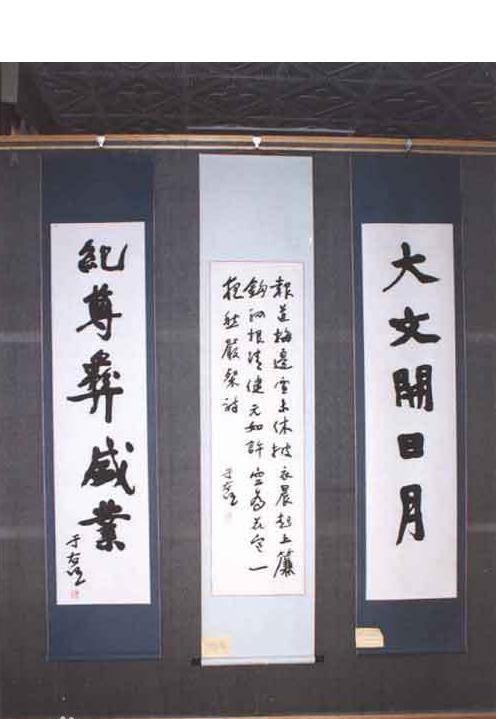 大文開日月
報道梅邊雪未休披衣晨起上簾
鉤根清健元如許為花一
嚴詩
于右任
紀尊彝盛業
于右任